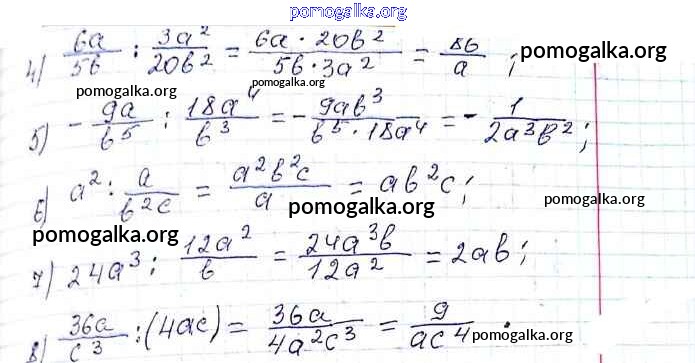 pomogalka.org
4) 6a/5b : 3a²/20b² = 6a · 20b²/5b · 3a² = 8b/a ; pomogalka.org
pomogalka.org
5) - 9a/b⁵ : 18a⁴/b³ = - 9ab³/b⁵ · 18a⁴ = - 1/2a³b² ;
6) a² : a/b²c = a²b²c/a = ab²c ; pomogalka.org
pomogalka.org pomogalka.org
7) 24a³ : 12a²/b = 24a³b/12a² = 2ab ;
8) 36a/c³ : (4ac) = 36a/4a²c³ = 9/ac⁴ . pomogalka.org